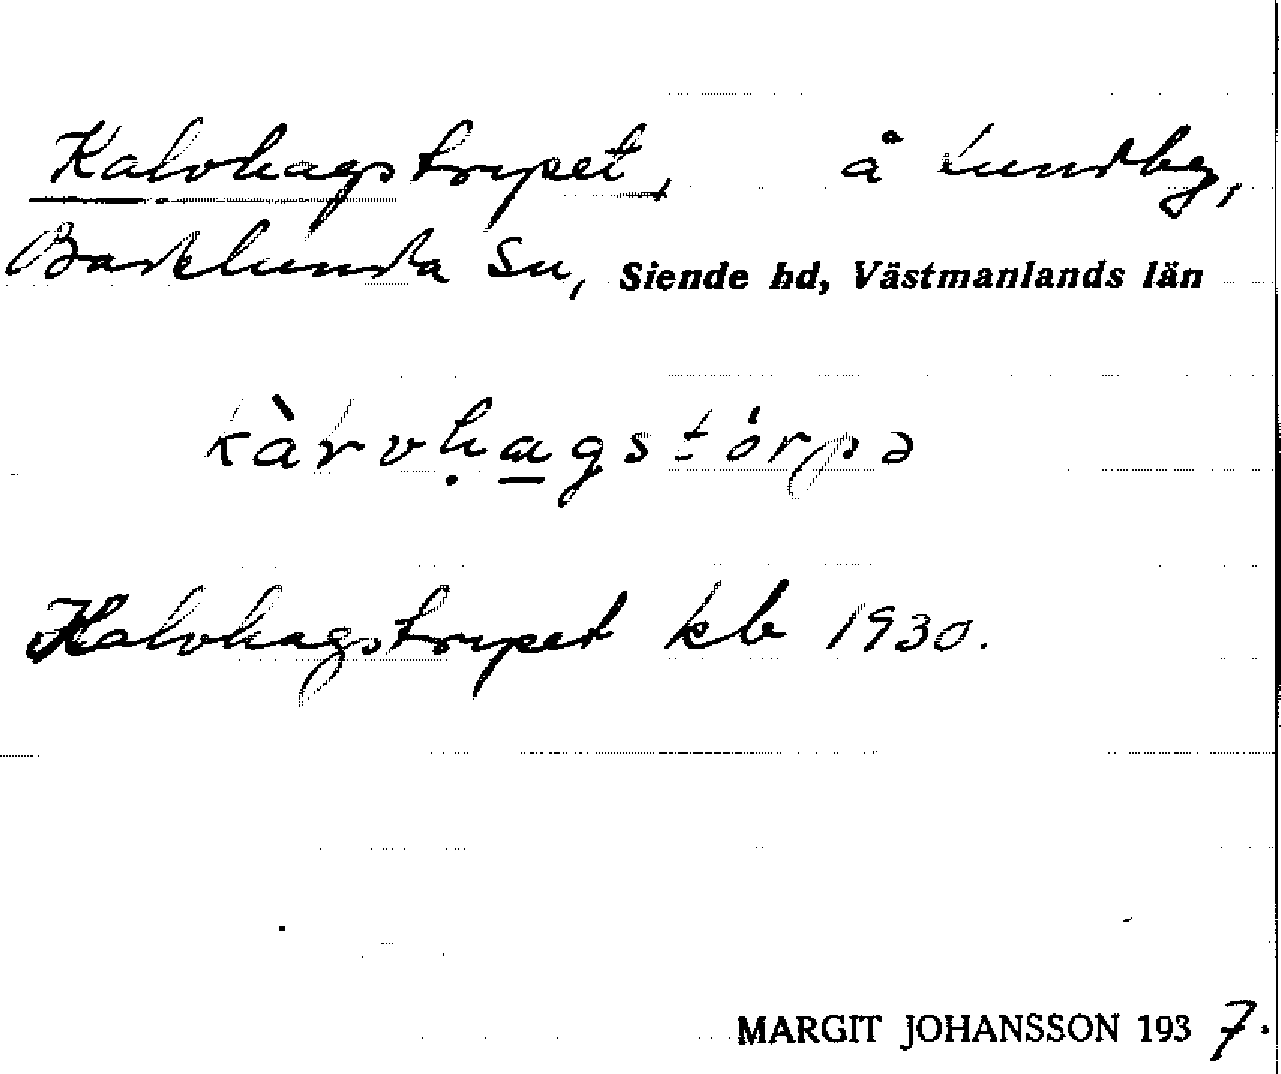 Kalvhagstorpet, å Lundby,
Badelunda sn, Siende hd, Västmanlands län
kàrvḥa̲gstórpə
Kalvhagstorpet kb 1930.
MARGIT JOHANSSON 1937.